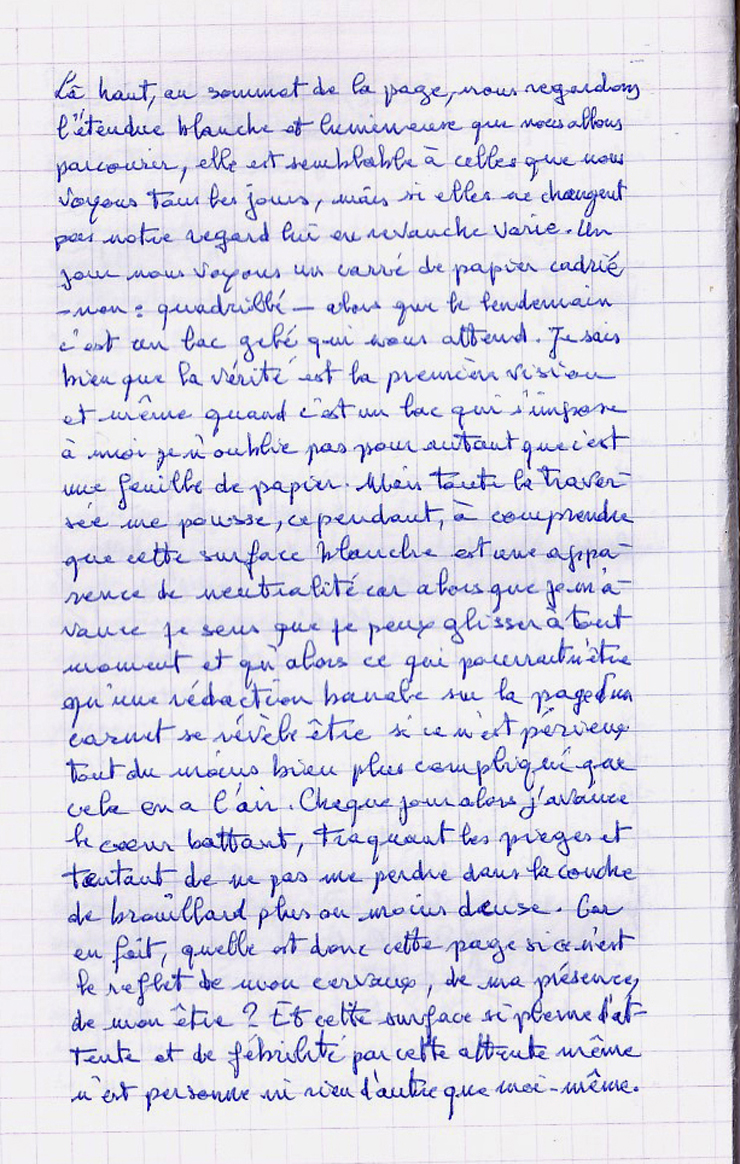 Là haut, au sommet de la page, nous regardons
l'étendue blanche et lumineuse que nous allons
parcourir, elle est semblable à celles que nous
voyons tous les jours, mais si elles ne changent
pas notre regard lui en revanche varie. Un
jour nous voyons un carré de papier cadrié
– non : quadrillé – alors que le lendemain
c'est un lac gelé qui nous attend. Je sais
bien que la vérité est la première vision
et même quand c'est un lac qui s'impose
à moi je n'oublie pas pour autant que c'est
une feuille de papier. Mais toute la traver-
sée me pousse, cependant, à comprendre
que cette surface blanche est une appa-
rence de neutralité car alors que je m'a-
vance je sens que je peux glisser à tout
moment et qu'alors ce qui pourrait n'être
qu'une rédaction banale sur la page d'un
carnet se révèle être si ce n'est périlleux
tout du moins bien plus compliqué que
cela en a l'air. Chaque jour alors j'avance
le cœur battant, traquant les pièges et
tentant de ne pas me perdre dans la couche
de brouillard plus ou moins dense. Car
en fait, quelle est donc cette page si ce n'est
le reflet de mon cerveau, de ma présence,
de mon être ? Et cette surface si pleine d'at-
tente et de fébrilité par cette attente même
n'est personne ni rien d'autre que moi-même.